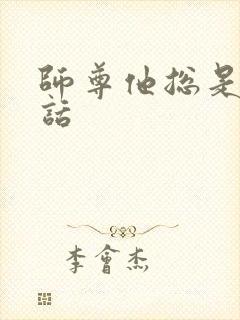 師尊他總是
話
李會杰